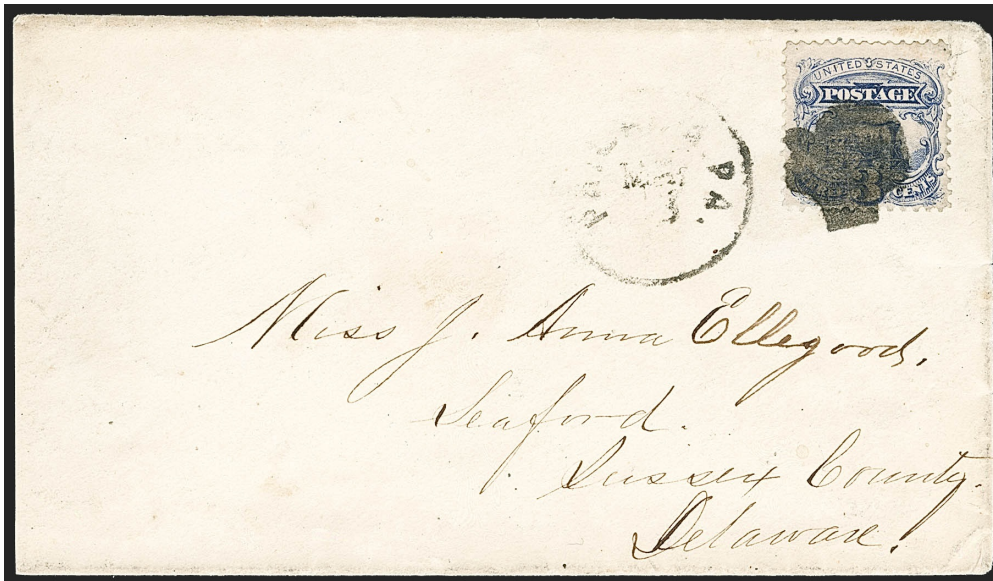 UNITED STATES
POSTAGE
3
CENTS
PA.
Miss J. Anna Ellegood,
Seaford.
Sussex County.
Delaware.